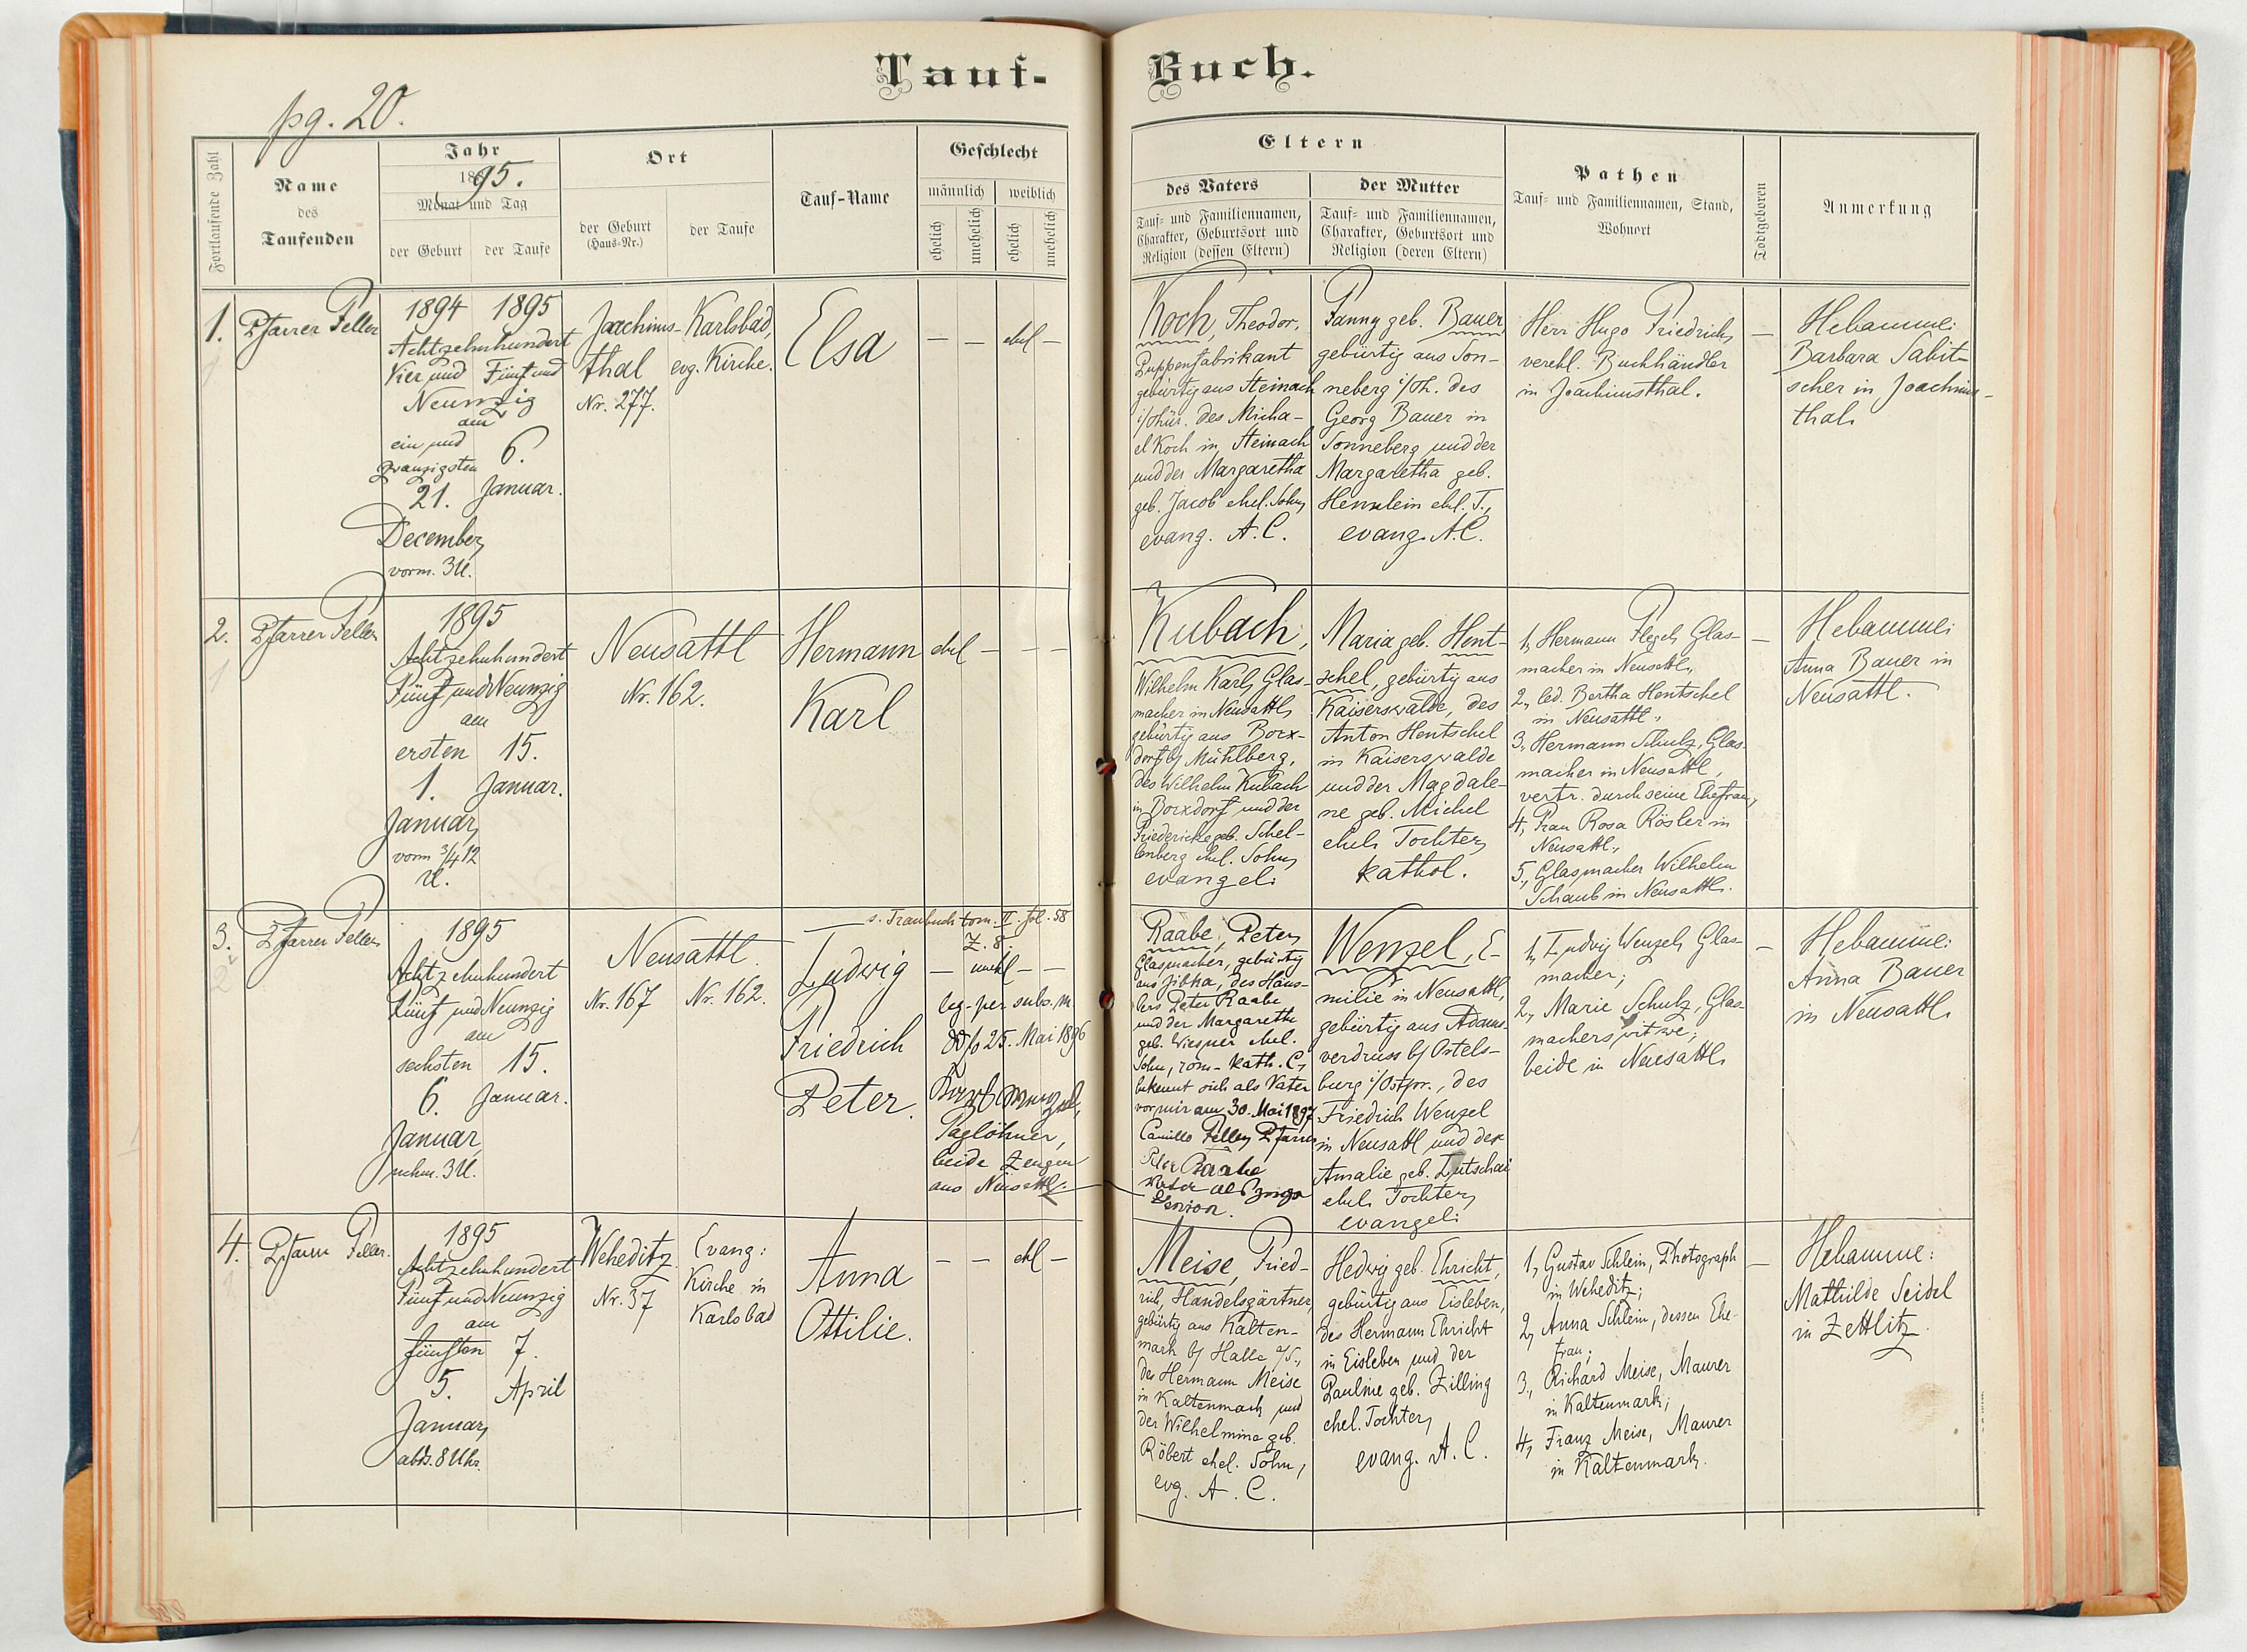 Tauf-
Buch.
pg. 20.
Fortlaufende Zahl
Name
des
Taufenden
Jahr
1895.
Monat und Tag
der Geburt
der Taufe
Ort
der Geburt
(Haus-Nr.)
der Taufe
Tauf-Name
Geschlecht
männlich
weiblich
ehelich
unehelich
ehelich
unehelich
Eltern
des Vaters
Tauf- und Familiennamen,
Charakter, Geburtsort und
Religion (dessen Eltern)
der Mutter
Tauf- und Familiennamen,
Charakter, Geburtsort und
Religion (deren Eltern)
Pathen
Tauf- und Familiennamen, Stand,
Wohnort
Todtgeboren
Anmerkung
1.
Pfarrer Feller
1894 1895
Achtzehnhundert
Vier und Fünf und
Neunzig
am
ein und
zwanzigsten 6.
21. Januar.
December,
vorm. 3 U.
Joachims-
thal
Nr. 277.
Karlsbad,
evg. Kirche.
Elsa
— — ehel —
Koch, Theodor,
Puppenfabrikant
gebürtig aus Steinach
i/Thür. des Micha-
el Koch in Steinach
und der Margaretha
geb. Jacob ehel. Sohn,
evang. A. C.
Fanny geb. Bauer,
gebürtig aus Son-
neberg i/Th. des
Georg Bauer in
Sonneberg und der
Margaretha geb.
Hennlein ehl. T.,
evang. A. C.
Herr Hugo Friedrich,
verehl. Buchhändler
in Joachimsthal.
—
Hebamme:
Barbara Sabit-
scher in Joachims-
thal.
2.
Pfarrer Feller
1895
Achtzehnhundert
Fünf und Neunzig
am
ersten 15.
1. Januar.
Januar,
vorm. 3/4 12
U.
Neusattl
Nr. 162.
Hermann
Karl
ehel — — —
Kubach,
Wilhelm Karl, Glas-
macher in Neusattl,
gebürtig aus Borx-
dorf b/ Mühlberg,
des Wilhelm Kubach
in Borxdorf und der
Friedericke geb. Schel-
lenberg ehel. Sohn,
evangel.
Maria geb. Hent-
schel, gebürtig aus
Kaiserswalde, des
Anton Hentschel
in Kaiserswalde
und der Magdale-
ne geb. Michel
ehel. Tochter,
kathol.
1, Hermann Flegel, Glas-
macher in Neusattl,
2, led. Bertha Hentschel
in Neusattl,
3, Hermann Schulz, Glas-
macher in Neusattl,
vertr. durch seine Ehefrau,
4, Frau Rosa Rösler in
Neusattl,
5, Glasmacher Wilhelm
Schaub in Neusattl.
—
Hebamme:
Anna Bauer in
Neusattl.
3.
Pfarrer Feller
1895
Achtzehnhundert
Fünf und Neunzig
am
sechsten 15.
6. Januar.
Januar,
nchm. 3 U.
Neusattl.
Nr. 167 Nr. 162.
Ludwig
Friedrich
Peter.
s. Traubuch tom. II. fol. 58
Z. 8.
— unehl — —
leg. per subs. m
ddto 25. Mai 1896
Taglöhner,
beide Zeugen
aus Neusattl.
Raabe, Peter,
Glasmacher, gebürtig
aus Jibka, des Häus-
lers Peter Raabe
und der Margarethe
geb. Wiesner ehel.
Sohn, röm-kath. C,
bekennt sich als Vater
vor mir am 30. Mai 1897
Camillo Feller, Pfarrer
Peter Raabe
Wenzel, E-
milie in Neusattl,
gebürtig aus Adams-
verdruss b/ Ortels-
burg i/Ostpr., des
Friedrich Wenzel
in Neusattl und der
Amalie geb. Lutschai
ehel. Tochter,
evangel.
1, Ludwig Wenzel, Glas-
macher;
2, Marie Schulz, Glas-
macherswitwe;
beide in Neusattl.
—
Hebamme:
Anna Bauer
in Neusattl.
4.
Pfarrer Feller.
1895
Achtzehnhundert
Fünf und Neunzig
am
fünften 7.
5. April
Januar,
abds. 8 Uhr.
Weheditz
Nr. 37
Evang:
Kirche in
Karlsbad
Anna
Ottilie.
— — ehl —
Meise, Fried-
rich, Handelsgärtner,
gebürtig aus Kalten-
mark b/ Halle a/S.,
des Hermann Meise
in Kaltenmark und
der Wilhelmine geb.
Röbert ehel. Sohn,
evg. A. C.
Hedwig geb. Ehricht,
gebürtig aus Eisleben,
des Hermann Ehricht
in Eisleben und der
Pauline geb. Zilling
ehel. Tochter,
evang. A. C.
1, Gustav Schlein, Photograph
in Weheditz;
2, Anna Schlein, dessen Ehe-
frau;
3, Richard Meise, Maurer
in Kaltenmark;
4, Franz Meise, Maurer
in Kaltenmark.
—
Hebamme:
Mathilde Seidel
in Zettlitz.